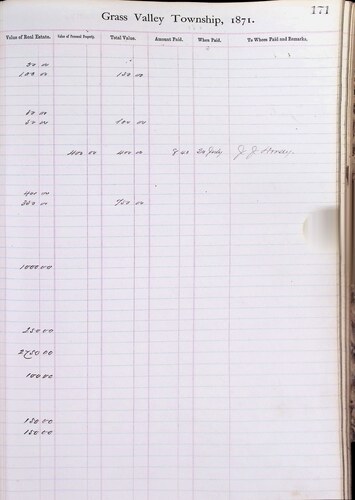 171
Grass Valley Township, 1871.
Value of Real Estate. Value of Personal Property. Total Value. Amount Paid. When Paid. To Whom Paid and Remarks.
50 00
100 00 150 00
50 00
400 00 400 00 July J. J.
400 00
350 00 750 00
1000 00
350 00
2750 00
100 00
150 00
150 00